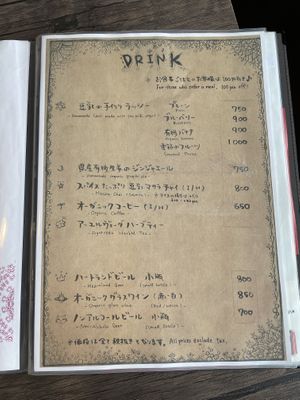 DRINK
お食事ごちゅうもんのお客様は100円引き♪
for those who order a meal, 100 yen off!
豆乳の手作りラッシー プレーン 750
ブルーベリー 900
有機バナナ 900
季節のフルーツ 1000
県産有機生姜のジンジャエール 750
スパイスたっぷり 豆乳マサラチャイ (I/H) 800
オーガニックコーヒー (I/H) 650
Organic Coffee
アーユルヴェーダ ハーブティー
Ayurveda Herbal Tea
ハートランドビール 小瓶 800
Heartland Beer (small bottle)
オーガニックグラスワイン (赤/白) 850
Organic glass wine
ノンアルコールビール 小瓶 700
Non-Alcoholic Beer (small bottle)
※価格は全て税抜きです。 All prices exclude Tax.